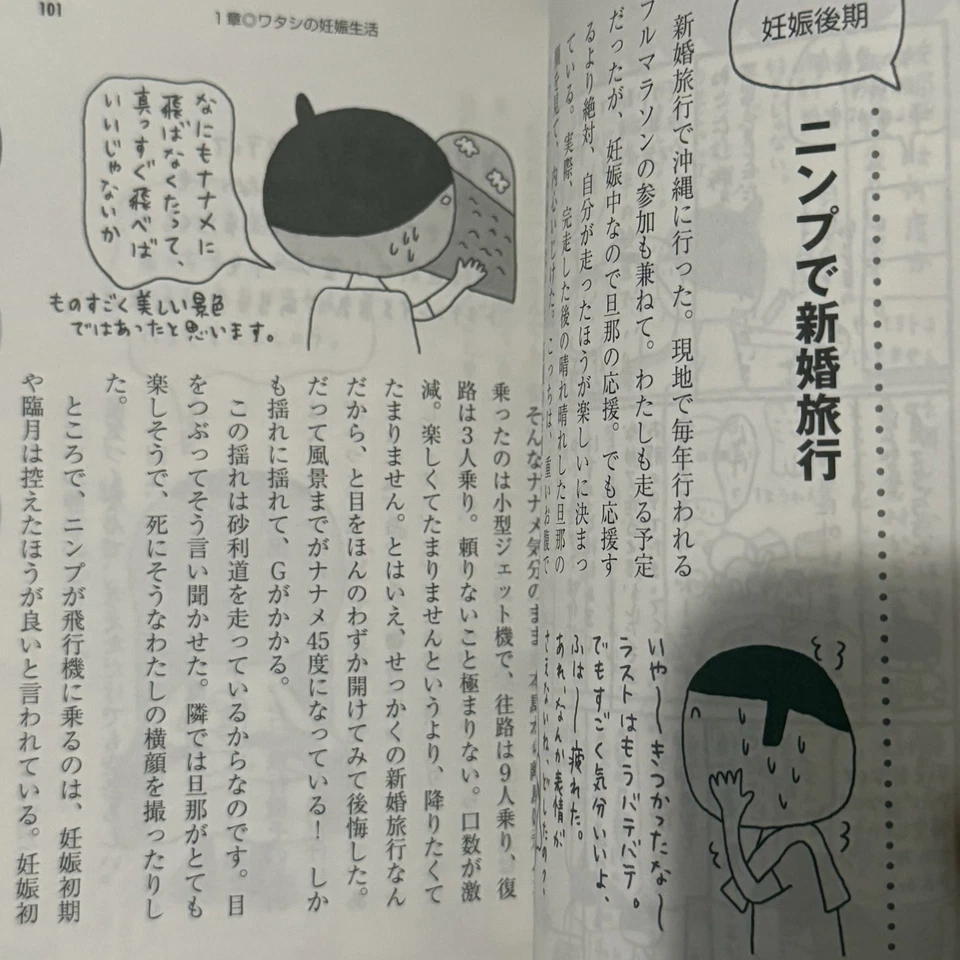 妊娠後期
ニンプで新婚旅行
新婚旅行で沖縄に行った。現地で毎年行われる
フルマラソンの参加も兼ねて。わたしも走る予定
だったが、妊娠中なので旦那の応援。でも応援す
るより絶対、自分が走ったほうが楽しいに決まっ
ている。実際、完走した後の晴れ晴れした旦那の
いや〜きつかったな〜
ラストはもうバテバテ。
でもすごく気分いいよ、
ふは〜疲れた。
あれ、なんか表情が
さえないね、どしたの?、
101
1章◎ワタシの妊娠生活
なにもナナメに
飛ばなくたって、
真っすぐ飛べば
いいじゃないか
ものすごく美しい景色
ではあったと思います。
そんなナナメ気分のまま
乗ったのは小型ジェット機で、往路は9人乗り、復
路は3人乗り。頼りないこと極まりない。口数が激
減。楽しくてたまりませんというより、降りたくて
たまりません。とはいえ、せっかくの新婚旅行なん
だから、と目をほんのわずか開けてみて後悔した。
だって風景までがナナメ45度になっている! しか
も揺れに揺れて、Gがかかる。
この揺れは砂利道を走っているからなのです。目
をつぶってそう言い聞かせた。隣では旦那がとても
楽しそうで、死にそうなわたしの横顔を撮ったりし
た。
ところで、ニンプが飛行機に乗るのは、妊娠初期
や臨月は控えたほうが良いと言われている。妊娠初